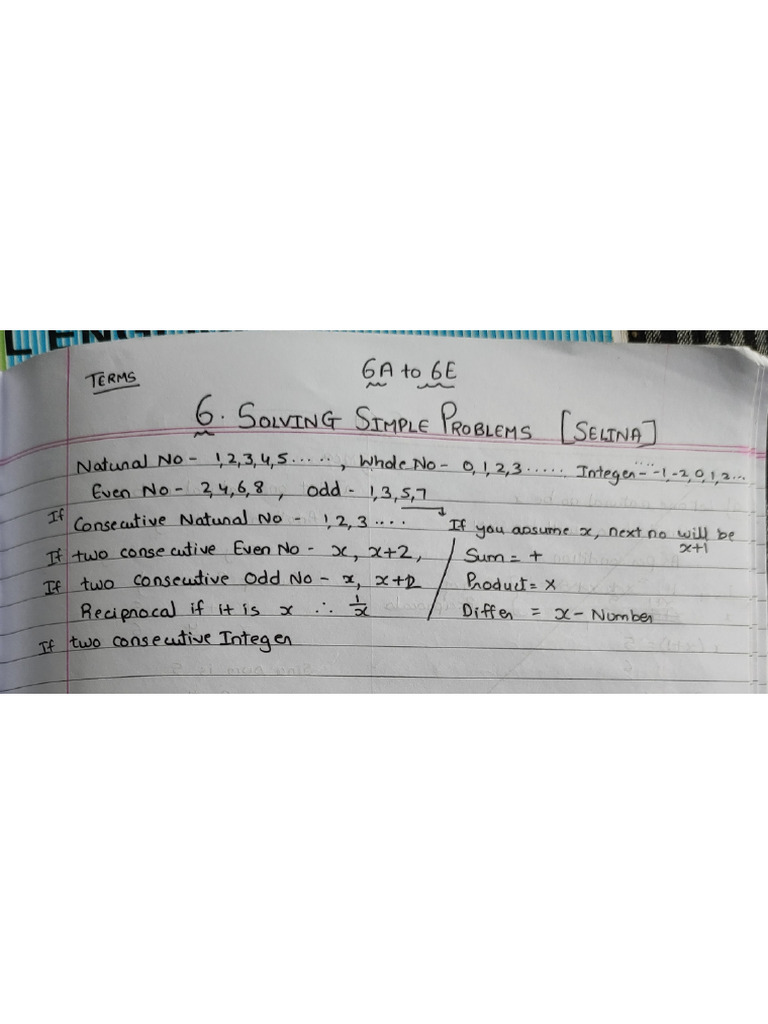 L ENG
6A to 6E
TERMS
6. SOLVING SIMPLE PROBLEMS [SELINA]
Natural No - 1,2,3,4,5 ....., Whole No - 0,1,2,3 ..... Integer - ... -1,-2,0,1,2...
Even No - 2,4,6,8 , Odd - 1,3,5,7
If Consecutive Natural No - 1,2,3 .... If you assume x, next no will be x+1
If two consecutive Even No - x, x+2, / Sum = +
If two consecutive Odd No - x, x+2 / Product = ×
Reciprocal if it is x ∴ 1/x / Differ = x - Number
If two consecutive Integer